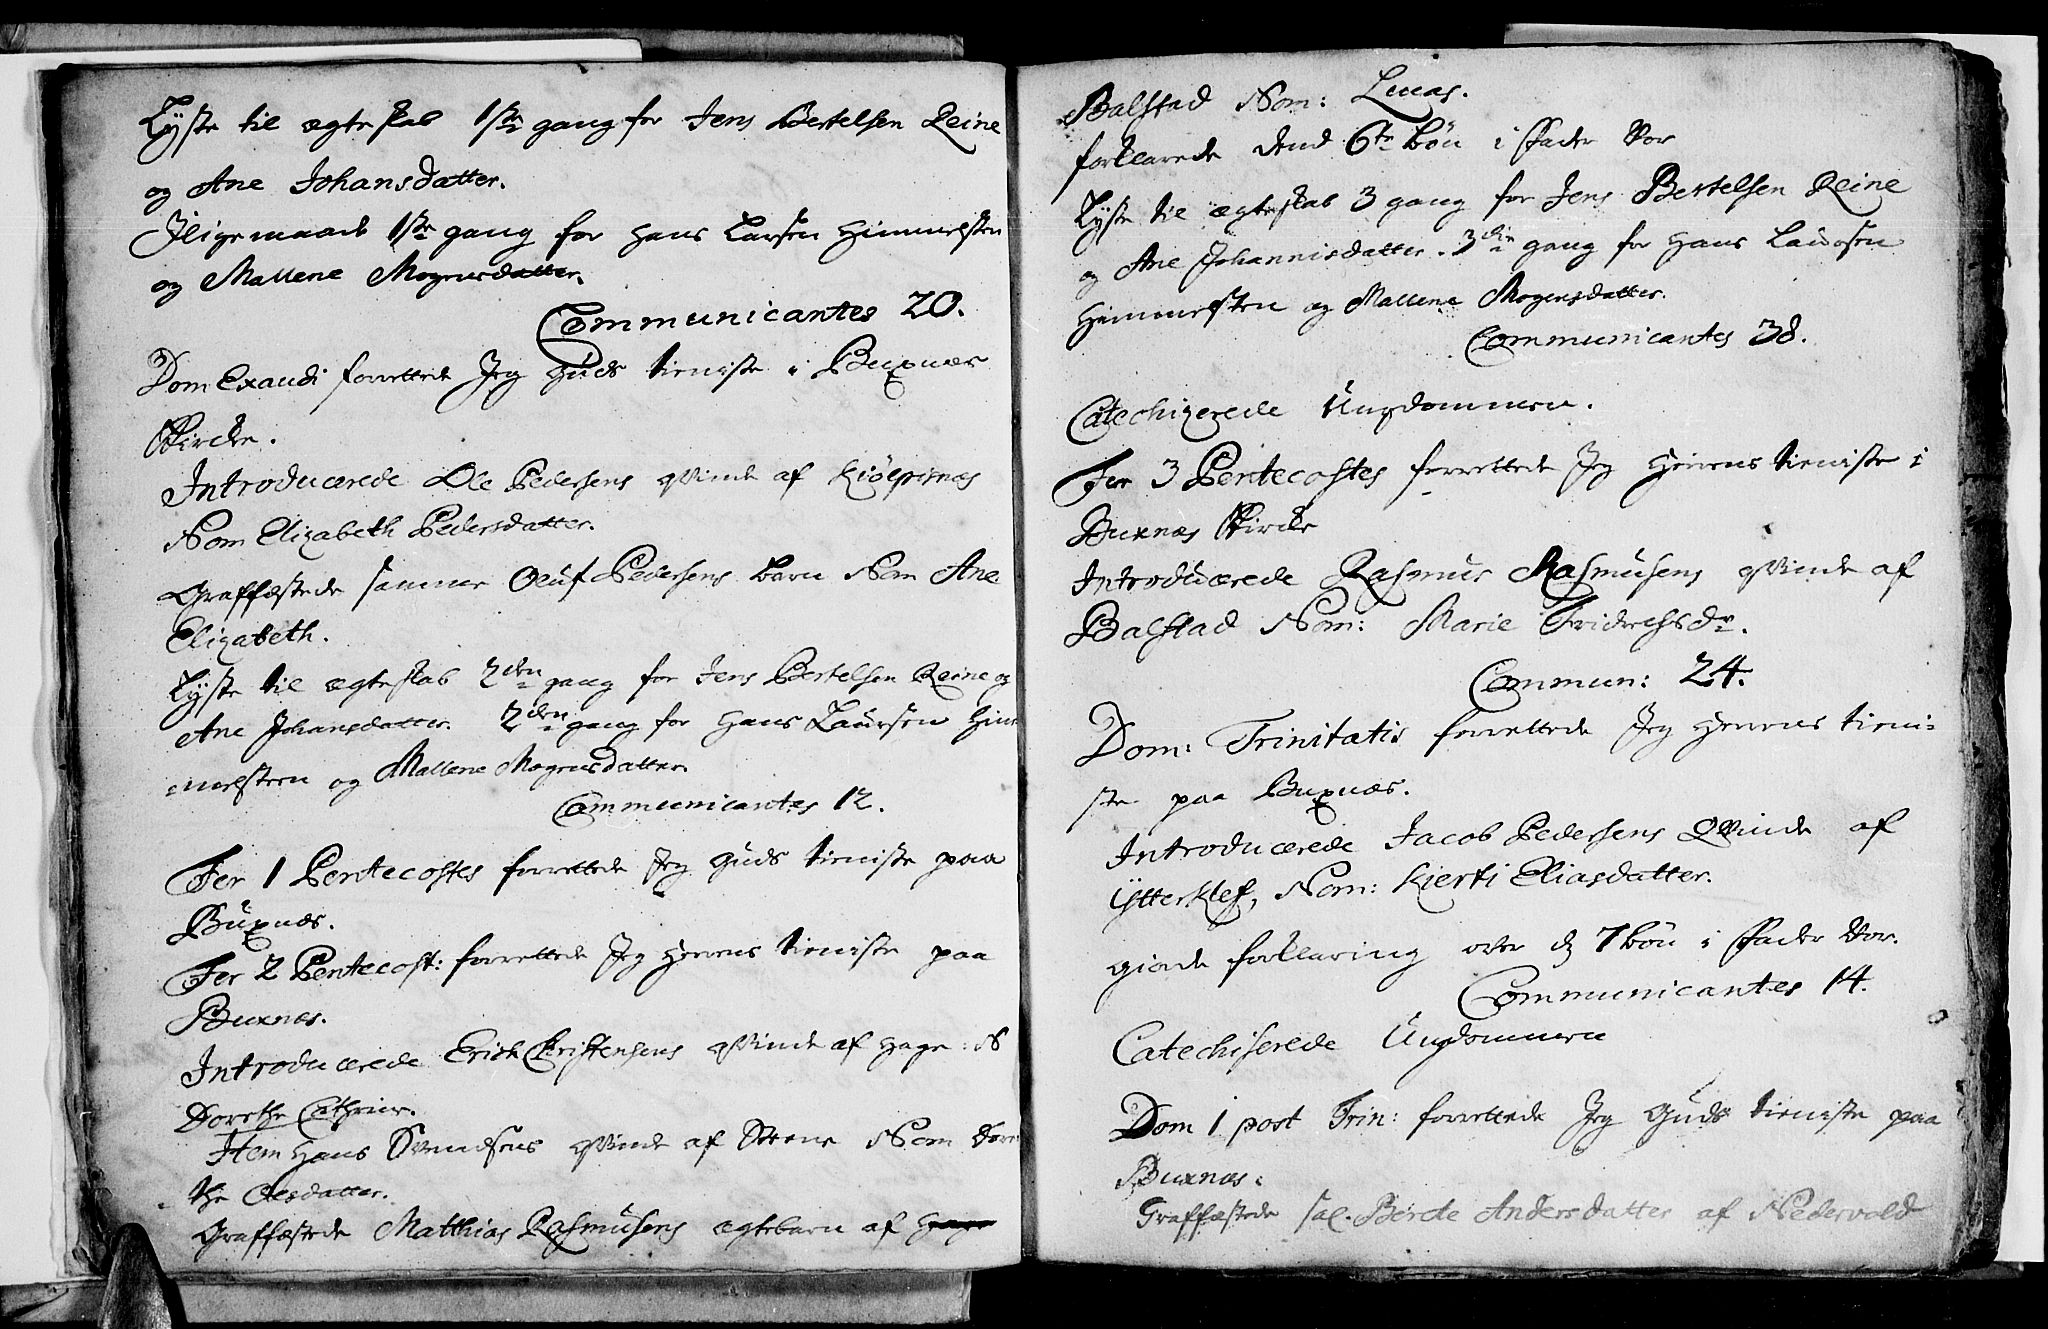 Lyste til ægteskab 1ste gang for Jens Bertelsen Reine
og Ane Johansdatter.
Iligemaade 1ste gang for Hans Larsen Himmelsten
og Mallene Mogensdatter.
Communicantes 20.
Dom Exaudi forrettede Jeg Guds tieniste i Buxnæs
Kircke.
Introducerede Ole Pedersens qvinde af Kiølpisnæs
Nom Elizabeth Pedersdatter.
Graffæstede samme Oluf Pedersens barn Nom Ane
Elizabeth.
Lyste til ægteskab 2den gang for Jens Bertelsen Reine og
Ane Johansdatter. 2den gang for Hans Laursen Him
melsteen og Mallene Mogensdatter.
Communicantes 12.
Fer 1 Pentecostes forrettede Jeg Guds tieniste paa
Buxnæs.
Fer 2 Pentecost: forrettede Jeg Herrens tieniste paa
Buxnæs.
Introducerede Erich Christensens qvinde af Hage: N
Dorethe Cathrine.
Item Hans Svendsens qvinde af Steene Nom Dore
the Olesdatter.
Graffæstede Matthias Rasmusens ægtebarn af
Balstad Nom: Lucas.
forklarede dend 6te bøn i Fader Vor
Lyste til ægteskab 3 gang for Jens Bertelsen Reine
og Ane Johannisdatter. 3die gang for Hans Laursen
Himmelsten og Mallene Mogensdatter.
Communicantes 38.
Catechizerede Ungdommen.
Fer 3 Pentecostes forrettede Jeg Herrens tieniste i
Buxnæs Kircke
Introducerede Rasmus Rasmusens qvinde af
Balstad Nom: Marie Fridrechsdr.
Commun: 24.
Dom: Trinitatis forrettede Jeg Herrens tieni-
ste paa Buxnæs.
Introducerede Jacob Pedersens Qvinde af
Ytterklef, Nom: Kiersti Eliasdatter.
giorde forklaring over d 7 bøn i Fader Vor.
Communicantes 14.
Catechiserede Ungdommen
Dom 1 post Trin: forrettede Jeg Guds tieniste paa
Buxnæs.
Graffæstede sal. Berete Andersdatter af Nedervold